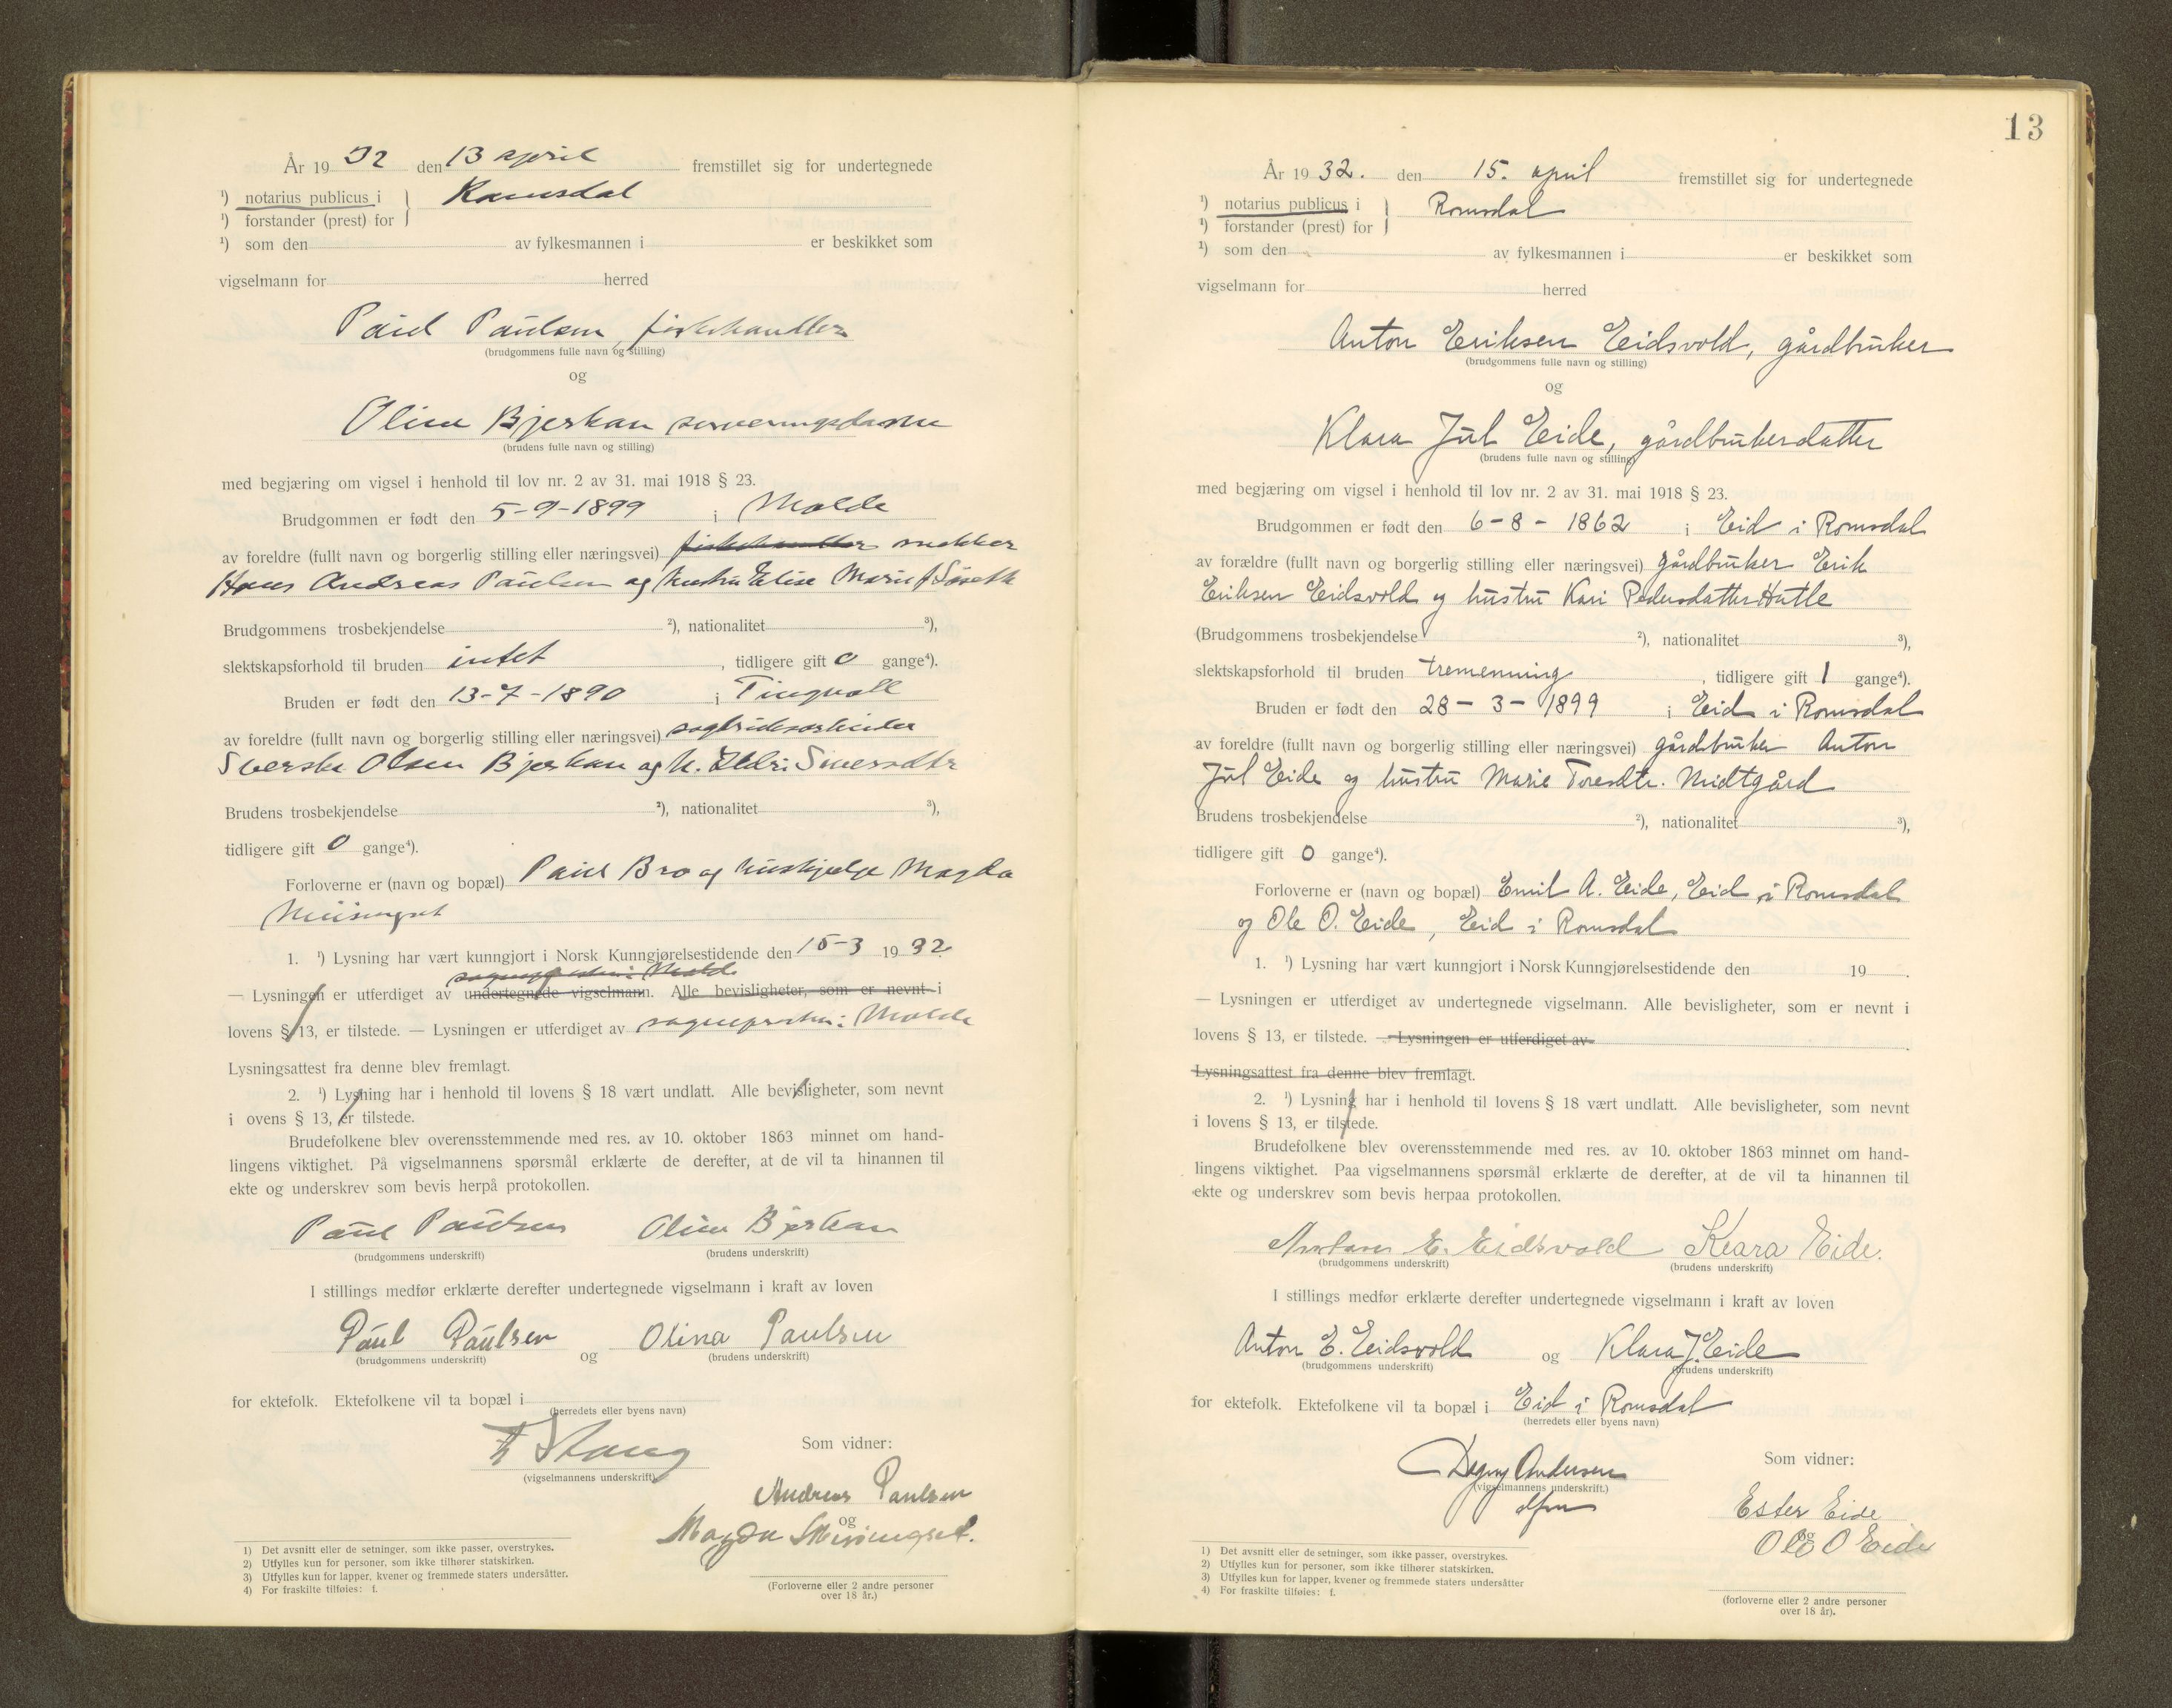 År 19 32 den 13 april fremstillet sig for undertegnede
¹) notarius publicus i
Romsdal
¹) forstander (prest) for
¹) som den av fylkesmannen i er beskikket som
vigselmann for herred
Paul Paulsen, fiskehandler
(brudgommens fulle navn og stilling)
og
Olina Bjerkan serveringsdame
(brudens fulle navn og stilling)
med begjæring om vigsel i henhold til lov nr. 2 av 31. mai 1918 § 23.
Brudgommen er født den 5-9-1899 i Molde
av foreldre (fullt navn og borgerlig stilling eller næringsvei) fiskehandler snekker
Hans Andreas Paulsen og hustru Elise Marie f
Brudgommens trosbekjendelse ²), nationalitet ³),
slektskapsforhold til bruden intet, tidligere gift 0 gange⁴).
Bruden er født den 13-7-1890 i Tingvoll
av foreldre (fullt navn og borgerlig stilling eller næringsvei) sagbruksarbeider
Sverke Olsen Bjerkan og h. Eldri Siversdtr
Brudens trosbekjendelse ²), nationalitet ³),
tidligere gift 0 gange⁴).
Forloverne er (navn og bopæl) Paul Bro og hushjelp Magda
1. ¹) Lysning har vært kunngjort i Norsk Kunngjørelsestidende den 15-3 19 32
sognepresten i Molde
— Lysningen er utferdiget av undertegnede vigselmann. Alle bevisligheter, som er nevnt i
lovens § 13, er tilstede. — Lysningen er utferdiget av sognepresten i Molde
Lysningsattest fra denne blev fremlagt.
2. ¹) Lysning har i henhold til lovens § 18 vært undlatt. Alle bevisligheter, som nevnt
i ovens § 13, er tilstede.
Brudefolkene blev overensstemmende med res. av 10. oktober 1863 minnet om hand-
lingens viktighet. På vigselmannens spørsmål erklærte de derefter, at de vil ta hinannen til
ekte og underskrev som bevis herpå protokollen.
Paul Paulsen Olina Bjerkan
(brudgommens underskrift) (brudens underskrift)
I stillings medfør erklærte derefter undertegnede vigselmann i kraft av loven
Paul Paulsen og Olina Paulsen
(brudgommens underskrift) (brudens underskrift)
for ektefolk. Ektefolkene vil ta bopæl i
(herredets eller byens navn)
Stang
Som vidner:
(vigselmannens underskrift)
Andreas Paulsen
og
Magda
1) Det avsnitt eller de setninger, som ikke passer, overstrykes.
2) Utfylles kun for personer, som ikke tilhører statskirken.
3) Utfylles kun for lapper, kvener og fremmede staters undersåtter.
4) For fraskilte tilføies: f.
(Forloverne eller 2 andre personer
over 18 år.)
13
År 19 32. den 15. april fremstillet sig for undertegnede
¹) notarius publicus i
Romsdal
¹) forstander (prest) for
¹) som den av fylkesmannen i er beskikket som
vigselmann for herred
Anton Eriksen Eidsvold, gårdbruker
(brudgommens fulle navn og stilling)
og
Klara Jul Eide, gårdbrukerdatter
(brudens fulle navn og stilling)
med begjæring om vigsel i henhold til lov nr. 2 av 31. mai 1918 § 23.
Brudgommen er født den 6-8-1862 i Eid i Romsdal
av forældre (fullt navn og borgerlig stilling eller næringsvei) gårdbruker Erik
Eriksen Eidsvold og hustru Kari Pedersdatter Hatle
(Brudgommens trosbekjendelse ²), nationalitet ³),
slektskapsforhold til bruden tremenning, tidligere gift 1 gange⁴).
Bruden er født den 28-3-1899 i Eid i Romsdal
av foreldre (fullt navn og borgerlig stilling eller næringsvei) gårdbruker Anton
Jul Eide og hustru Marie Toresdtr. Midtgård
Brudens trosbekjendelse ²), nationalitet ³),
tidligere gift 0 gange⁴).
Forloverne er (navn og bopæl) Emil A. Eide, Eid i Romsdal
og Ole O. Eide, Eid i Romsdal
1. ¹) Lysning har vært kunngjort i Norsk Kunngjørelsestidende den 19 .
— Lysningen er utferdiget av undertegnede vigselmann. Alle bevisligheter, som er nevnt i
lovens § 13, er tilstede. — Lysningen er utferdiget av .
Lysningsattest fra denne blev fremlagt.
2. ¹) Lysning har i henhold til lovens § 18 vært undlatt. Alle bevisligheter, som nevnt
i lovens § 13, er tilstede.
Brudefolkene blev overensstemmende med res. av 10. oktober 1863 minnet om hand-
lingens viktighet. Paa vigselmannens spørsmål erklærte de derefter, at de vil ta hinannen til
ekte og underskrev som bevis herpaa protokollen.
Anton E. Eidsvold Klara Eide.
(brudgommens underskrift) (brudens underskrift)
I stillings medfør erklærte derefter undertegnede vigselmann i kraft av loven
Anton E. Eidsvold og Klara J. Eide
(brudgommens underskrift) (brudens underskrift)
for ektefolk. Ektefolkene vil ta bopæl i Eid i Romsdal
(herredets eller byens navn)
Dagny Andersen
Som vidner:
(vigselmannens underskrift.)
Ester Eide
og
Ole O Eide
1) Det avsnitt eller de setninger, som ikke passer, overstrykes.
2) Utfylles kun for personer, som ikke tilhører statskirken.
3) Utfylles kun for lapper, kvener og fremmede staters undersåtter
4) For fraskilte tilføies: f.
(forloverne eller 2 andre personer
over 18 år).